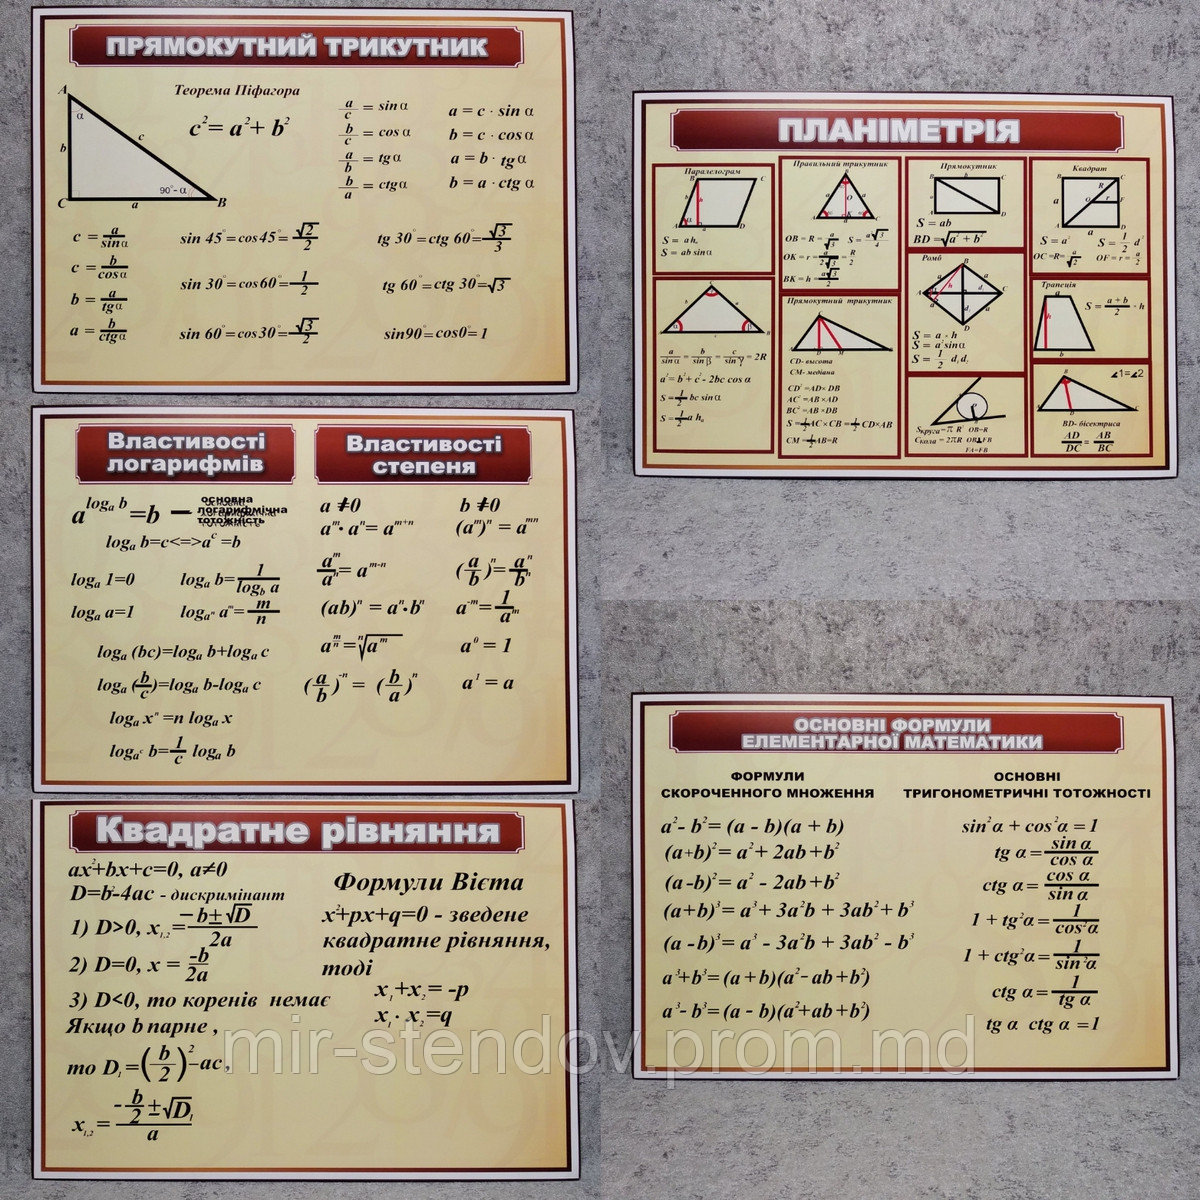 ПРЯМОКУТНИЙ ТРИКУТНИК
Теорема Піфагора
c² = a² + b²
A
α
b
c
90° - α
C
a
B
a/c = sin α
b/c = cos α
a/b = tg α
b/a = ctg α
a = c · sin α
b = c · cos α
a = b · tg α
b = a · ctg α
c = a/sin α
c = b/cos α
b = a/tg α
a = b/ctg α
sin 45° = cos 45° = √2/2
sin 30° = cos 60° = 1/2
sin 60° = cos 30° = √3/2
tg 30° = ctg 60° = √3/3
tg 60° = ctg 30° = √3
sin90° = cos0° = 1
ПЛАНІМЕТРІЯ
Паралелограм
S = ah
S = ab sin α
Правильний трикутник
OB = R = a/√3
S = a²√3/4
OK = r = a/2√3 = R/2
BK = h = a√3/2
Прямокутник
S = ab
BD = √a² + b²
Квадрат
S = a²
S = 1/2 d²
OC = R = a/√2
OF = r = a/2
a/sin α = b/sin β = c/sin γ = 2R
a² = b² + c² - 2bc cos α
S = 1/2 bc sin α
S = 1/2 a hₐ
Прямокутний трикутник
CD- висота
CM- медіана
CD² = AD× DB
AC² = AB ×AD
BC² = AB ×DB
S = 1/2 AC × CB = 1/2 CD×AB
CM = 1/2 AB=R
Ромб
S = a · h
S = a² sin α
S = 1/2 d₁ d₂
Sкруга = π R² OB=R
Cкола = 2πR OB⊥FB
FA=FB
Трапеція
S = a + b/2 · h
∡1=∡2
BD- бісектриса
AD/DC = AB/BC
Властивості
логарифмів
a^logₐ b = b — основна
логарифмічна
тотожність
logₐ b=c<=>a^c =b
logₐ 1=0
logₐ b= 1/log_b a
logₐ a=1
log_aⁿ a^m = m/n
logₐ (bc)=logₐ b+logₐ c
logₐ (b/c)=logₐ b-logₐ c
logₐ xⁿ =n logₐ x
log_a^c b= 1/c logₐ b
Властивості
степеня
a ≠0
b ≠0
a^m · aⁿ = a^m+n
(a^m)ⁿ = a^mn
a^m/aⁿ = a^m-n
(a/b)ⁿ = aⁿ/bⁿ
(ab)ⁿ = aⁿ·bⁿ
a^-m = 1/a^m
a^m/n = ⁿ√a^m
a⁰ = 1
(a/b)^-n = (b/a)ⁿ
a¹ = a
Квадратне рівняння
ax²+bx+c=0, a≠0
D=b²-4ac - дискримінант
1) D>0, x₁,₂ = -b±√D/2a
2) D=0, x = -b/2a
3) D<0, то коренів немає
Якщо b парне ,
то D₁ = (b/2)² -ac ,
x₁,₂ = -b/2 ±√D₁/a
Формули Вієта
x²+px+q=0 - зведене
квадратне рівняння,
тоді
x₁+x₂= -p
x₁· x₂=q
ОСНОВНІ ФОРМУЛИ
ЕЛЕМЕНТАРНОЇ МАТЕМАТИКИ
ФОРМУЛИ
СКОРОЧЕННОГО МНОЖЕННЯ
a² - b² = (a - b)(a + b)
(a+b)² = a² + 2ab + b²
(a-b)² = a² - 2ab + b²
(a+b)³ = a³ + 3a²b + 3ab² + b³
(a-b)³ = a³ - 3a²b + 3ab² - b³
a³+b³ = (a + b)(a² - ab + b²)
a³- b³ = (a - b)(a² + ab + b²)
ОСНОВНІ
ТРИГОНОМЕТРИЧНІ ТОТОЖНОСТІ
sin²α + cos²α = 1
tg α = sin α/cos α
ctg α = cos α/sin α
1 + tg²α = 1/cos²α
1 + ctg²α = 1/sin²α
ctg α = 1/tg α
tg α ctg α = 1
mir-stendov.prom.md